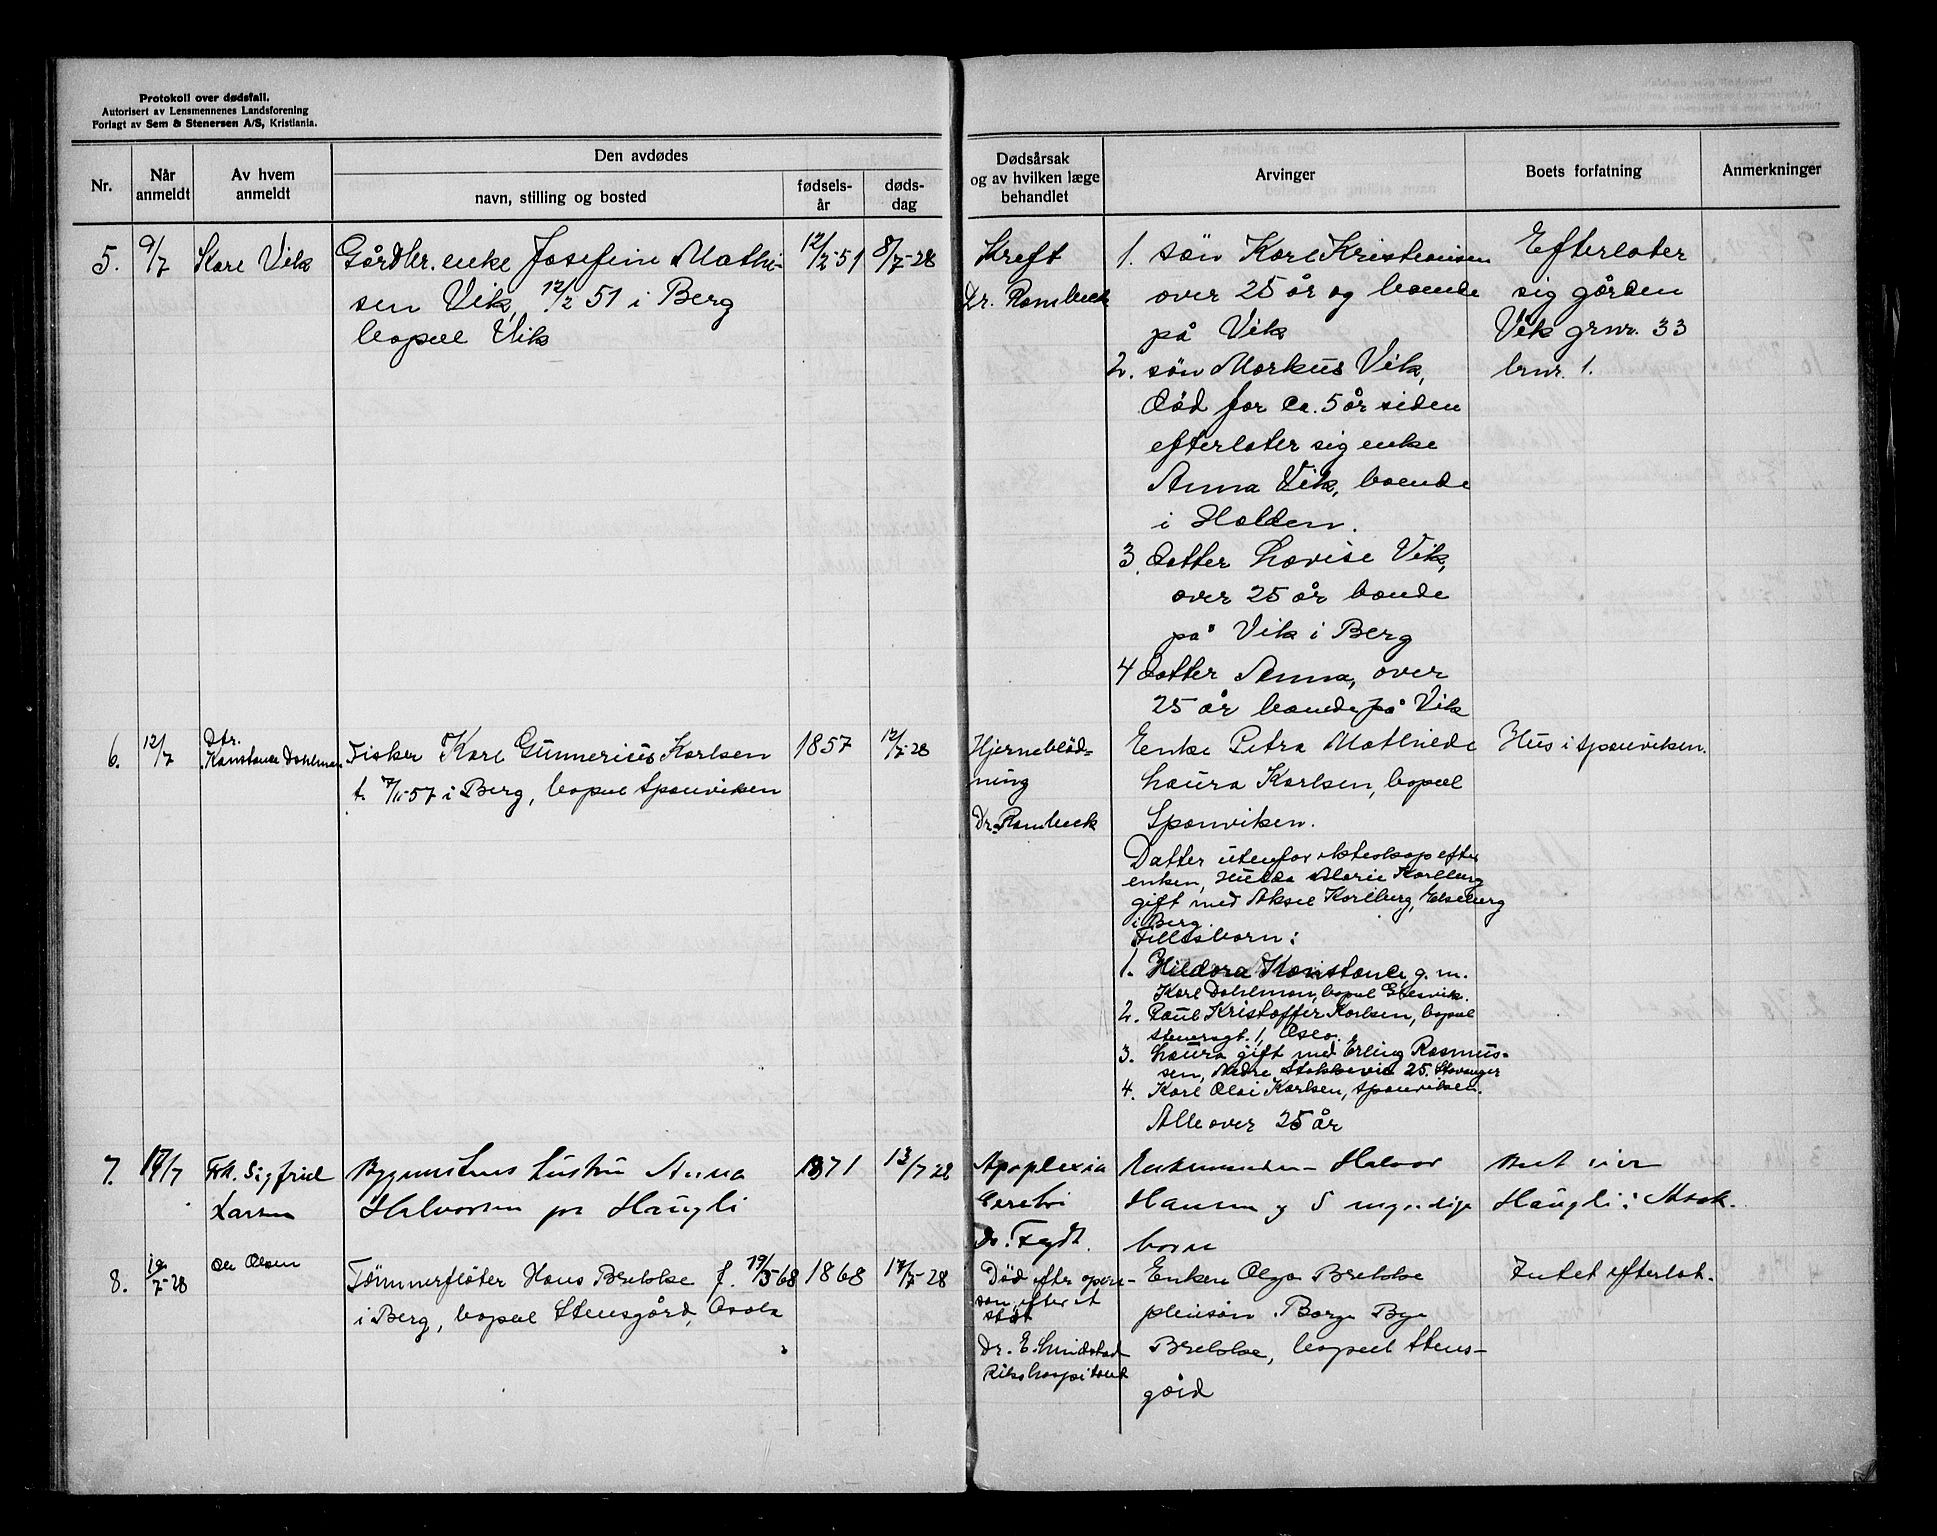 Protokoll over dødsfall.
Autorisert av Lensmennenes Landsforening
Forlagt av Sem & Stenersen A/S, Kristiania.
Nr.
Når anmeldt
Av hvem anmeldt
Den avdødes
navn, stilling og bosted
fødsels-år
døds-dag
Dødsårsak
og av hvilken læge
behandlet
Arvinger
Boets forfatning
Anmerkninger
5. 9/7 Karl Vik
Gårdbr. enke Josefine Mathi-
sen Vik, 12/2 51 i Berg
bopæl Vik
12/2-51
8/7-28
Kreft
Dr. Rambeck
1. søn Karl Kristiansen
over 25 år og boende
på Vik
2. søn Markus Vik,
død for ca. 5 år siden
efterlater sig enke
Anna Vik, boende
i Halden.
3. datter Lovise Vik,
over 25 år boende
på Vik i Berg
4 datter Anna, over
25 år boende på Vik
Efterlater
sig gården
Vik grnr. 33
brnr. 1.
6. 12/7
Dtr.
Konstanse Dahlman
Fisker Karl Gunnerius Karlsen
f. 7/11-57 i Berg, bopæl Sponviken
1857
12/7-28
Hjerneblød-
ning
Dr. Rambeck
Enke Petra Mathilde
Laura Karlsen, bopæl
Sponviken.
Datter utenfor ekteskap efter
enken, Hulda Marie Karlberg
gift med Aksel Karlberg, Edseberg
i Berg.
Fellesbarn:
1. Hildora Konstance, g. m.
Karl Dahlman, bopæl
2. Paul Kristoffer Karlsen, bopæl
1, Oslo.
3. Laura gift med Erling Rasmus-
sen, Nedre Stokkevei 25. Stavanger
4. Karl Olai Karlsen, Sponviken.
Alle over 25 år
Hus i Sponviken.
7. 17/7
Frk. Sigfrid
Larsen
Bygmesters hustru Anna
Halvorsen på Haugli
1871
13/7 28
Apoplexia
Cerebri
Dr. Fegdt.
Enkemanden Halvor
Hansen og 5 myndige
barn
Boet eier
Haugli i Asak.
8. 19/7-28
Ole Olsen
Tømmerfløter Hans Brekke f. 19/5 68
i Berg, bopæl Stensgård, Asak
1868
17/7-28
Død efter opera-
sjon efter et
støt
Dr. E. Lundstad
Rikshospitalet
Enken Olga Brekke
pleiesøn Borge Bye
Brekke, bopæl Stens-
gård
Intet efterlat.